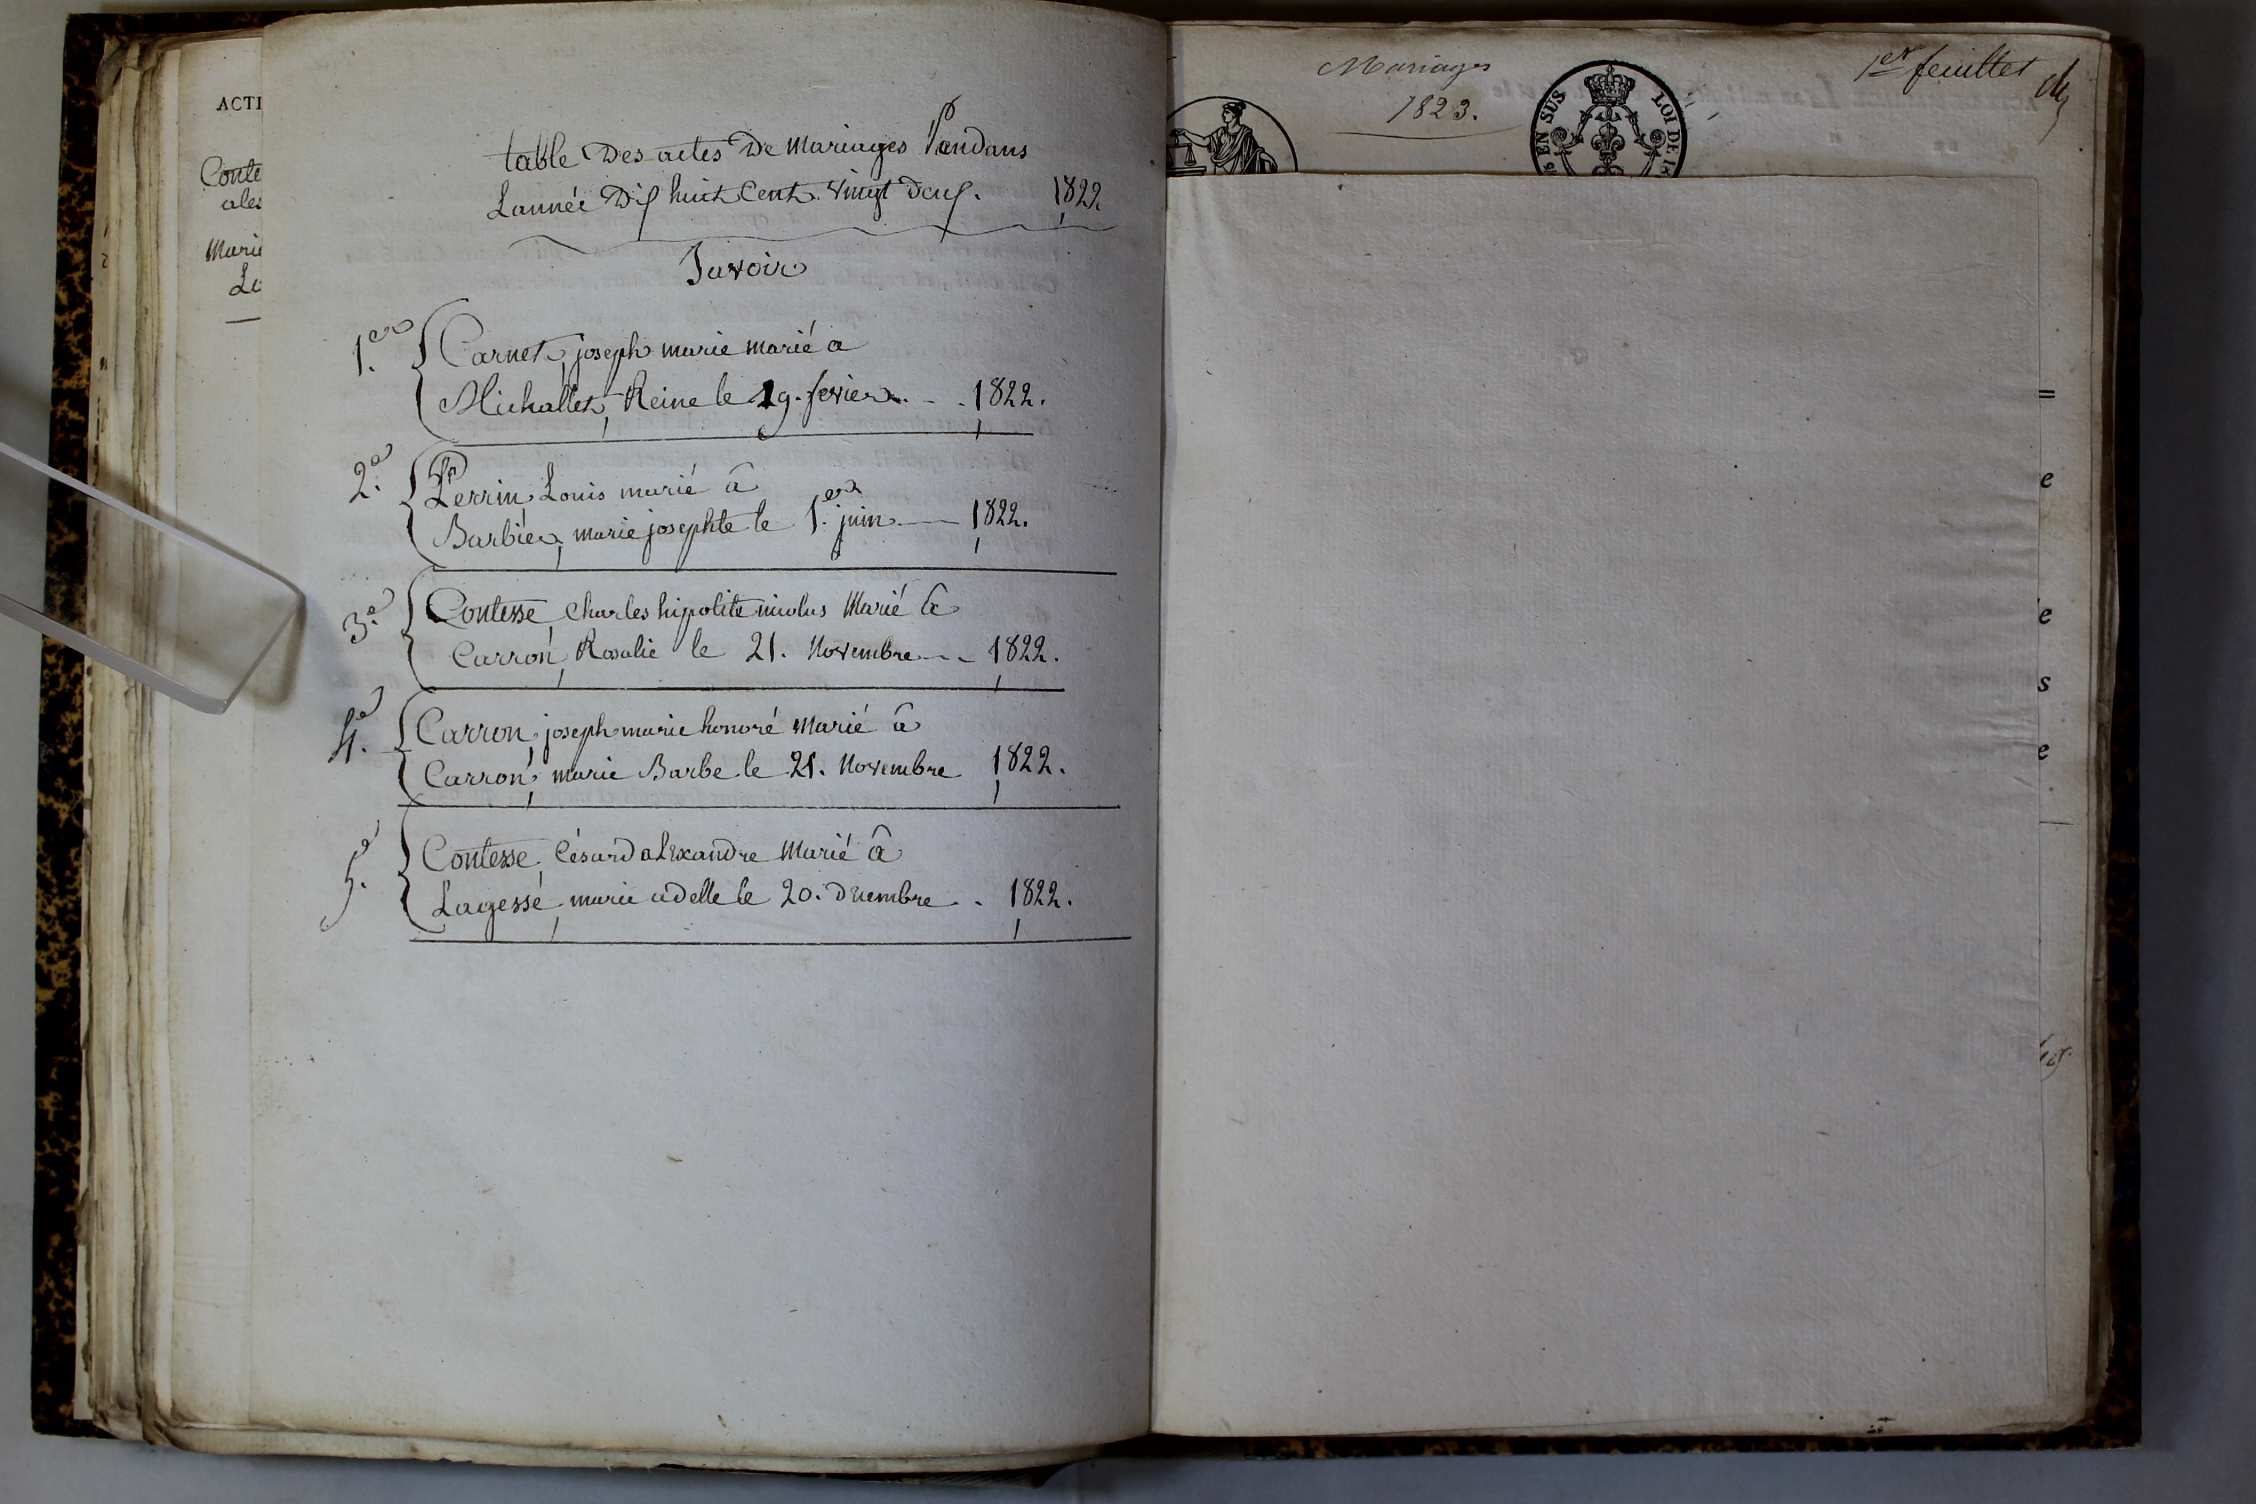 ACTI
Conte
ales
Marie
La
table Des actes De Mariages Pendans
Lannée Dix huit Cent vingt Deux. 1822.
Savoir
1.er Carnet, joseph marie marié a
Michallet, Reine le 19. fevier. - . 1822.
2.e Perrin, Louis marié â
Barbier, marie josephte le 1.er juin — 1822.
3.e Contesse, Charles hipolite nicolas Marié â
Carron, Rosalie le 21. Novembre - - 1822.
4.e Carron, joseph marie honoré Marié â
Carron, marie Barbe le 21. Novembre 1822.
5.e Contesse, Césard alexandre Marié â
Lagessé, marie adelle le 20. Decembre - 1822.
Mariages
1823.
EN SUS
LOI DE
1.er feuillet
=
e
e
s
e